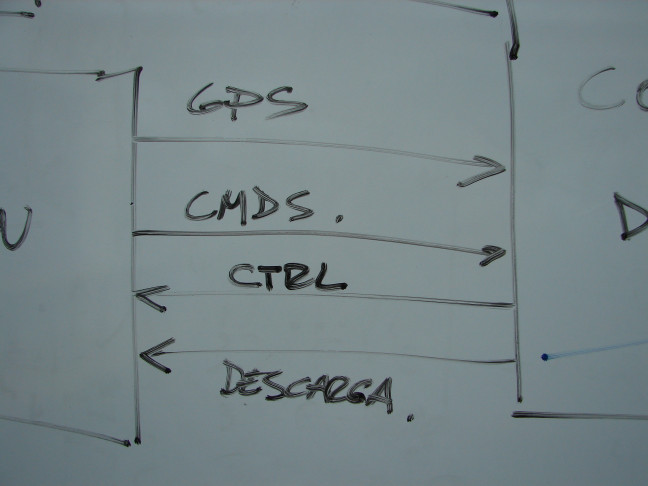 GPS
CMDS.
CTRL
DESCARGA.